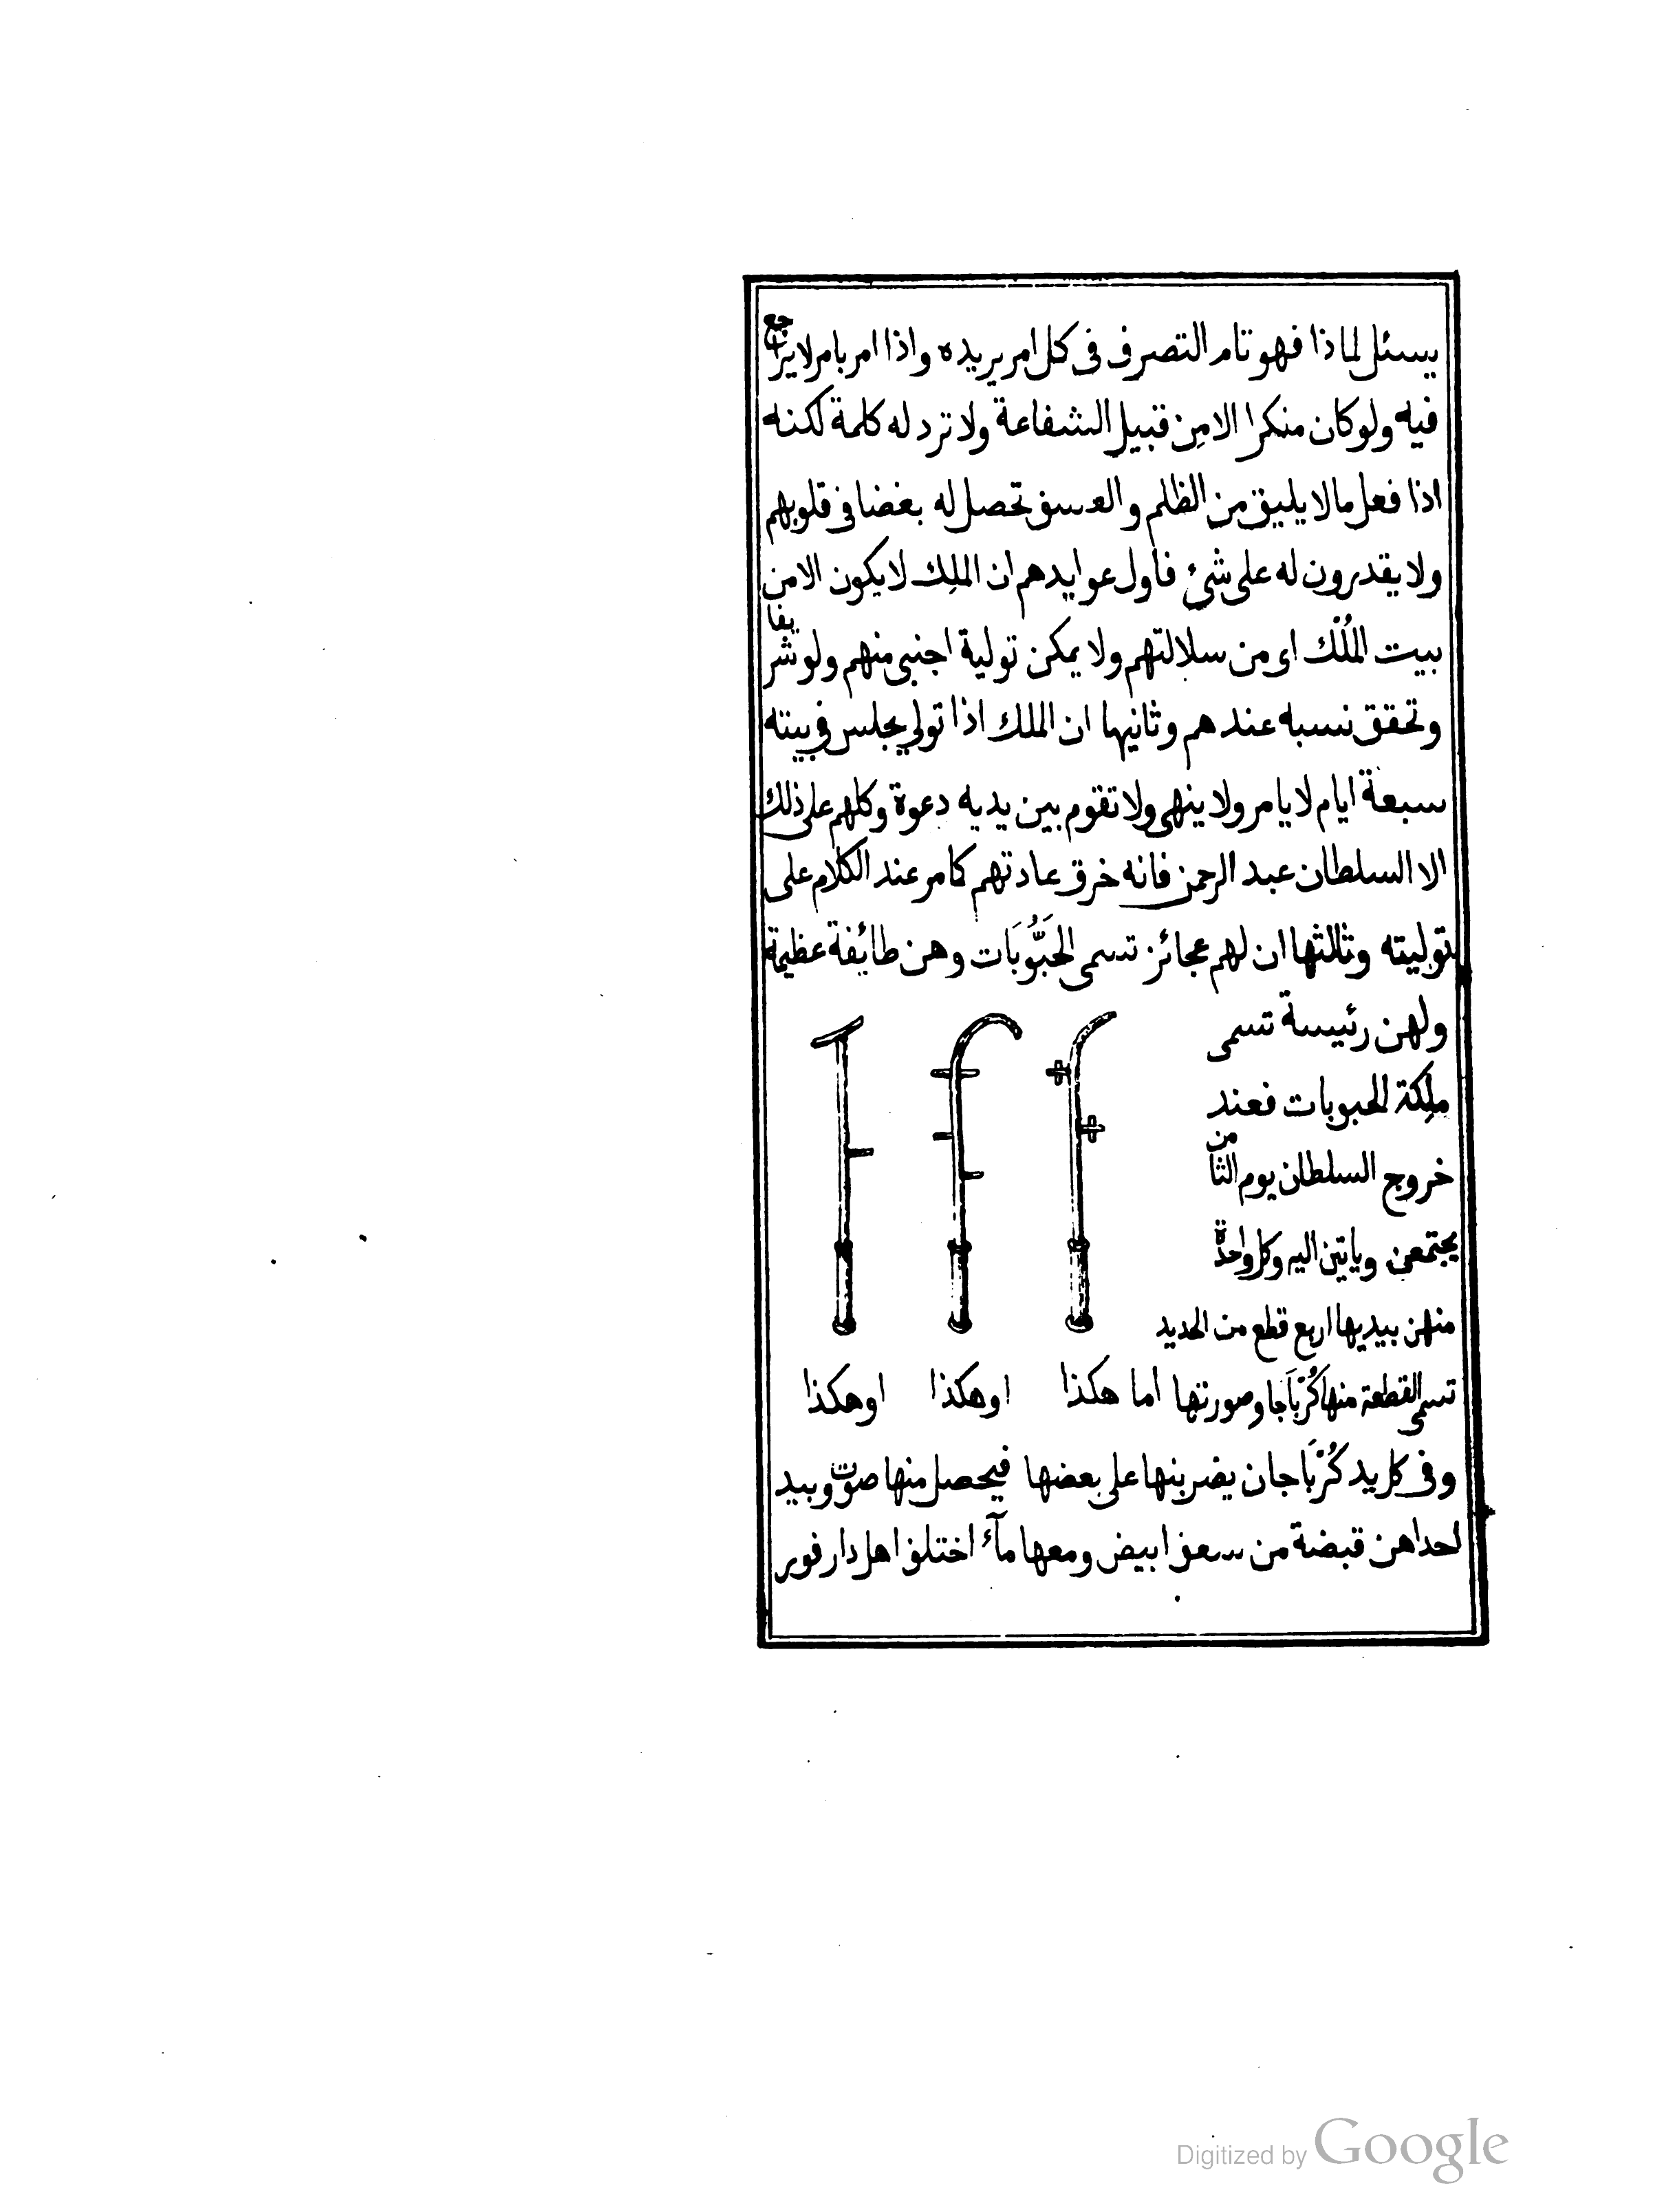 يسئل لماذا فهو تام التصرف فى كل امر يريده واذا امر بامر لا يراجع
فيه ولو كان منكرا الا من قبيل الشفاعة ولا ترد له كلمة لكنه
اذا فعل ما لا يليق من الظلم والعسف تحصل له بغضا فى قلوبهم
ولا يقدرون له على شئ فاول عوايدهم ان الملِك لا يكون الا من
بيت المُلْك اى من سلالتهم ولا يمكن تولية اجنبى منهم ولو شريفا
وتحقق نسبه عندهم وثانيها ان الملك اذا تولى يجلس فى بيته
سبعة ايام لا يامر ولا ينهى ولا تقوم بين يديه دعوة وكلهم على ذلك
الا السلطان عبد الرحمن فانه خرق عادتهم كما مر عند الكلام على
توليته وثالثها ان لهم عجائز تسمى الحَبُّوبَات وهن طائفة عظيمة
ولهن رئيسة تسمى
ملِكة الحبوبات فعند
خروج السلطان يوم الثامن
يجتمعن وياتين اليه وكل واحدة
منهن بيديها اربع قطع من الحديد
تسمى القطعة منها كُرْبَاجا وصورتها اما هكذا اوهكذا اوهكذا
وفى كل يد كُرْبَاجان يضربنها على بعضها فيحصل منها صوت وبيد
احداهن قبضة من سعف ابيض ومعها مآء اختلف اهل دارفور
Digitized by Google